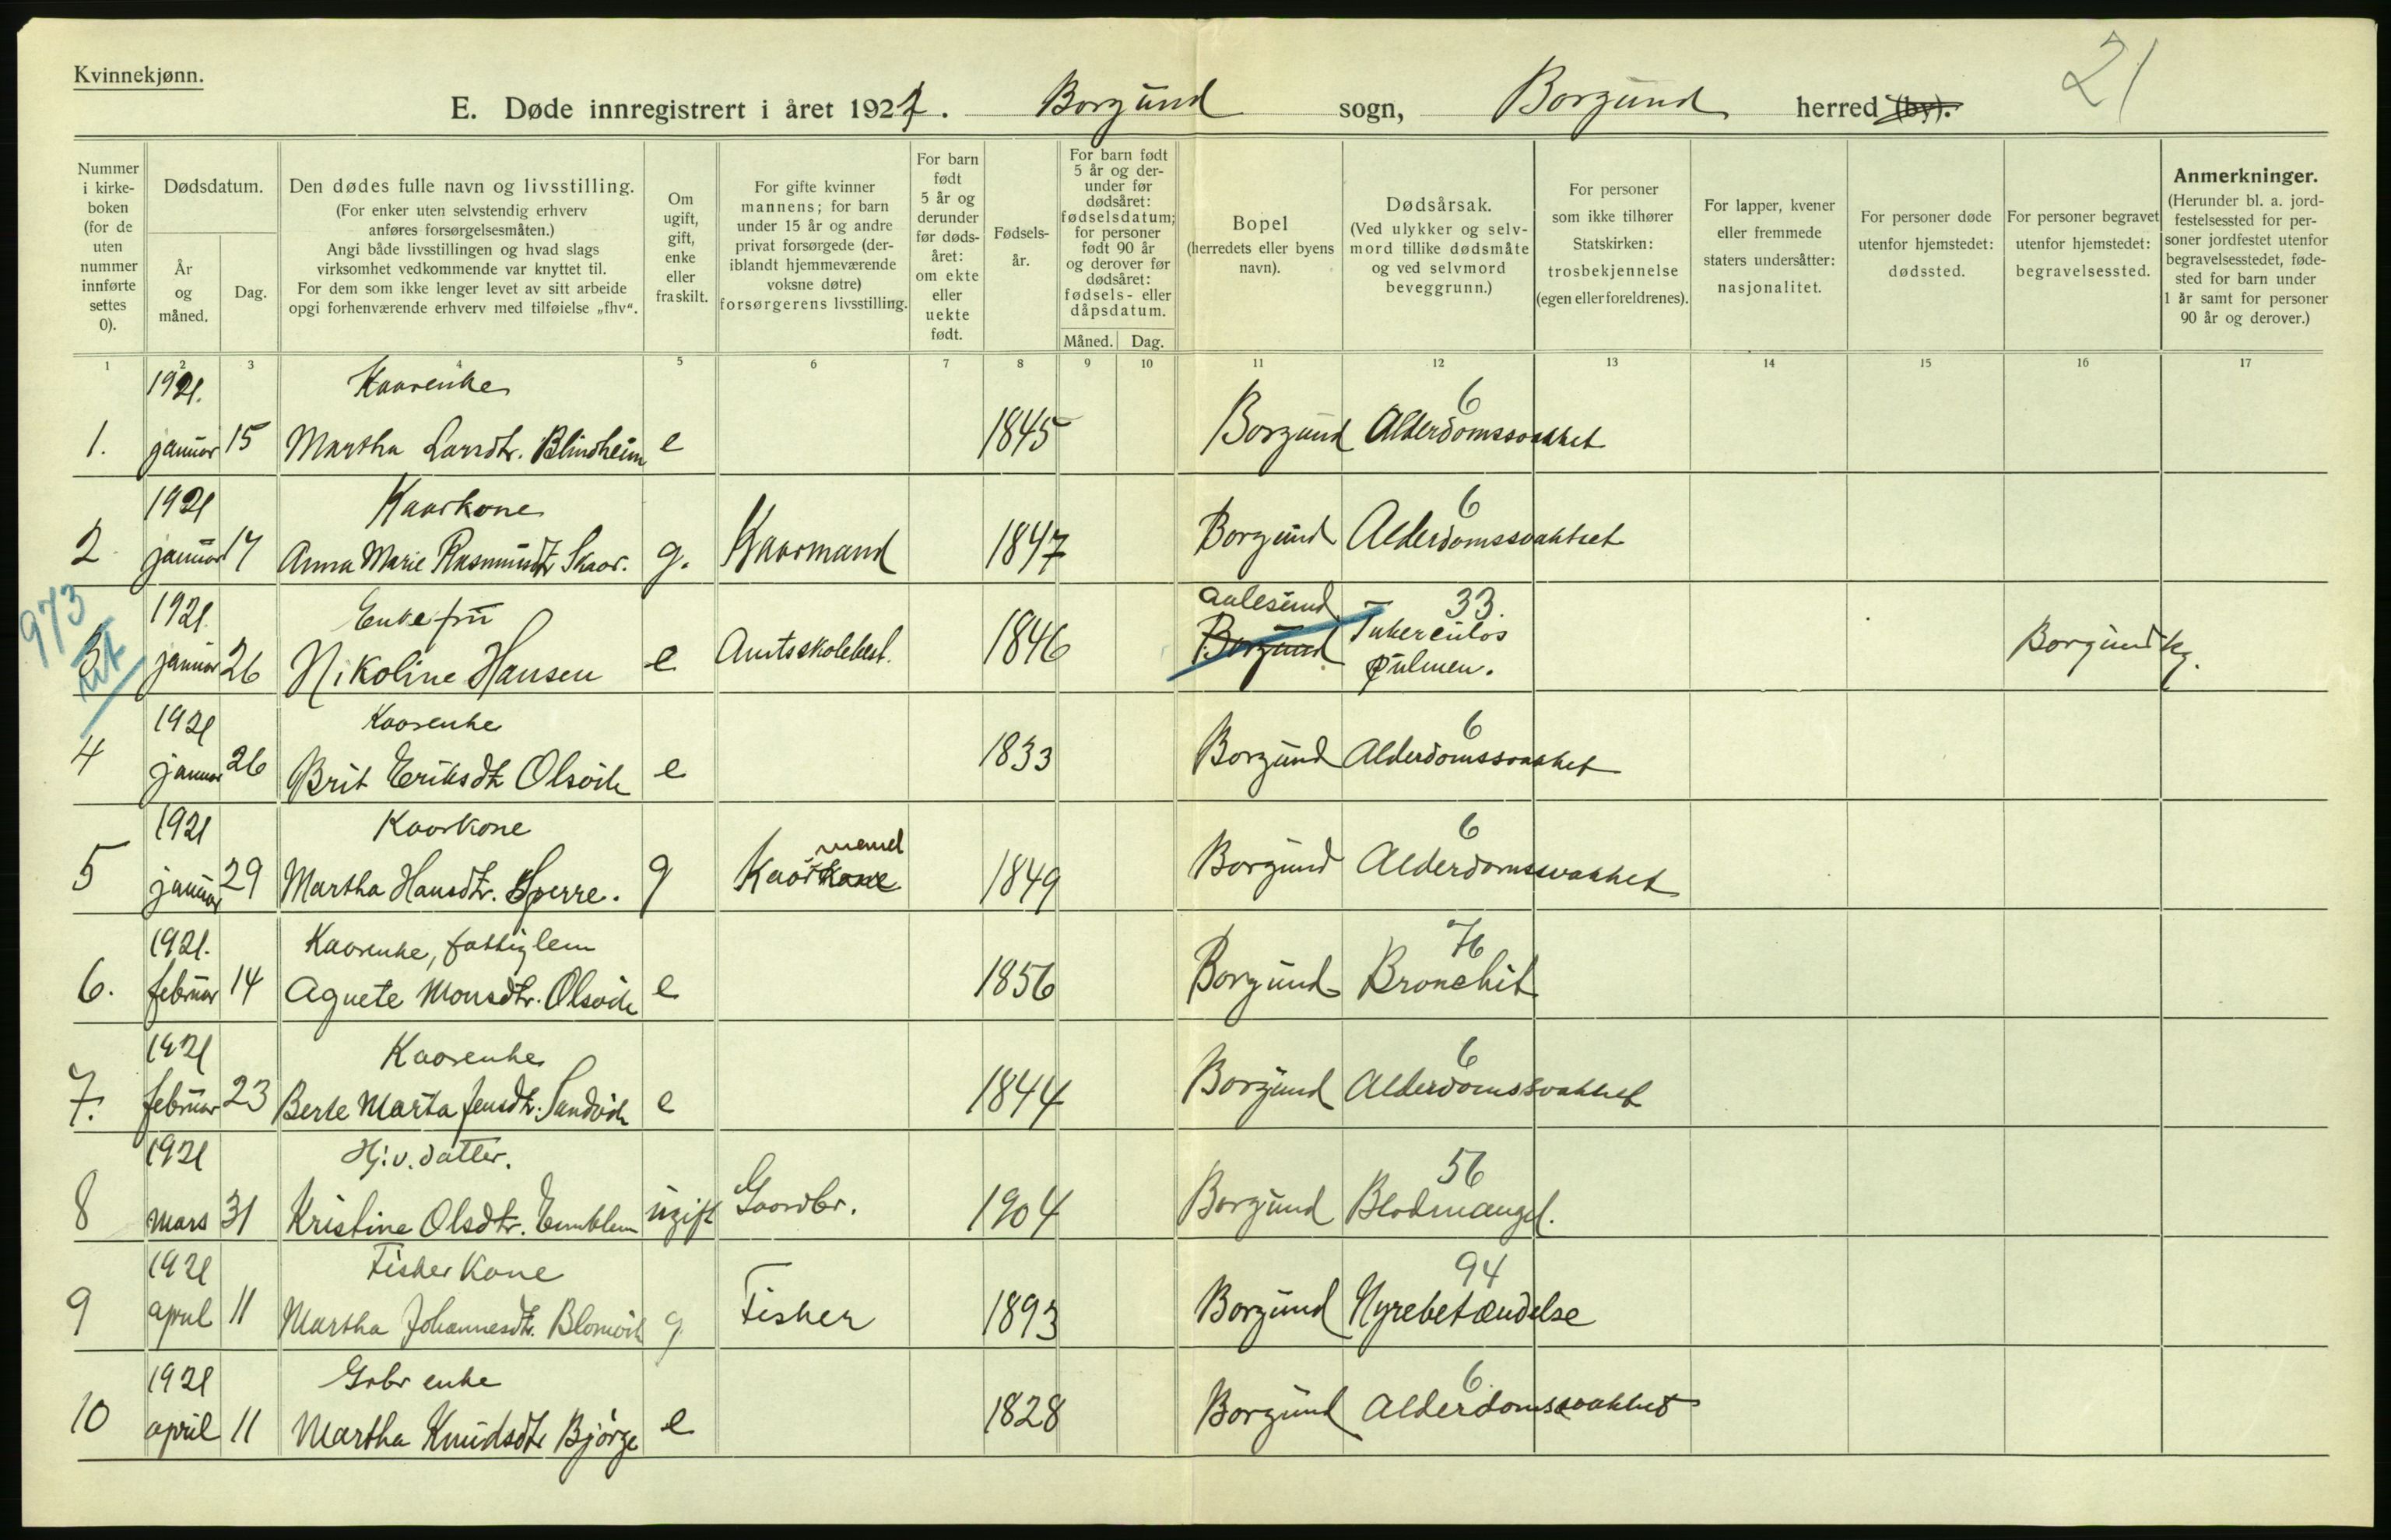 Kvinnekjønn.
21
E. Døde innregistrert i året 1921. Borgund sogn, Borgund herred (by).
Nummer i kirkeboken (for de uten nummer innførte settes 0).
Dødsdatum.
År og måned.
Dag.
Den dødes fulle navn og livsstilling.
(For enker uten selvstendig erhverv
anføres forsørgelsesmåten.)
Angi både livsstillingen og hvad slags
virksomhet vedkommende var knyttet til.
For dem som ikke lenger levet av sitt arbeide
opgi forhenværende erhverv med tilføielse „fhv“.
Om ugift, gift, enke eller fraskilt.
For gifte kvinner
mannens; for barn
under 15 år og andre
privat forsørgede (der-
iblandt hjemmeværende
voksne døtre)
forsørgerens livsstilling.
For barn født 5 år og derunder før dødsåret: om ekte eller uekte født.
Fødsels-
år.
For barn født
5 år og der-
under før
dødsåret:
fødselsdatum;
for personer
født 90 år
og derover før
dødsåret:
fødsels- eller
dåpsdatum.
Måned. Dag.
Bopel
(herredets eller byens
navn).
Dødsårsak.
(Ved ulykker og selv-
mord tillike dødsmåte
og ved selvmord
beveggrunn.)
For personer
som ikke tilhører
Statskirken:
trosbekjennelse
(egen eller foreldrenes).
For lapper, kvener
eller fremmede
staters undersåtter:
nasjonalitet.
For personer døde
utenfor hjemstedet:
dødssted.
For personer begravet
utenfor hjemstedet:
begravelsessted.
Anmerkninger.
(Herunder bl. a. jord-
festelsessted for per-
soner jordfestet utenfor
begravelsesstedet, føde-
sted for barn under
1 år samt for personer
90 år og derover.)
1 2 3 4 5 6 7 8 9 10 11 12 13 14 15 16 17
1921. Kaarenke 6
1. januar 15 Martha Larsdtr. Blindheim e 1845 Borgund Alderdomssvakhet
1921 Kaarkone 6
2 januar 17 Anna Marie Rasmusdtr Skaar. g. Kaarmand 1847 Borgund Alderdomssvakhet
973
1921. Enkefru Aalesund 33.
3 januar 26 Nikoline Hansen e Amtsskolebest. 1846 Borgund Tuberculos Borgund kg.
pulmen.
1921 Kaarenke 6
4 januar 26 Brit Eriksdtr Olsvik e 1833 Borgund Alderdomssvakhet
1921 Kaarkone mand 6
5 januar 29 Martha Hansdtr. Sperre. g Kaarkone 1849 Borgund Alderdomssvakhet
1921. Kaarenke, fattiglem 76
6. februar 14 Agnete Monsdtr. Olsvik e 1856 Borgund Bronchit
1921 Kaarenke 6
7. februar 23 Berte Marta Jensdtr. Sandvik e 1844 Borgund Alderdomssvakhet
1921 Hj. v. datter. 56
8 mars 31 Kristine Olsdtr. Emblem ugift Gaardbr. 1904 Borgund Blodmangel.
1921 Fisker kone 94
9 april 11 Martha Johannesdtr. Blomvik g Fisker 1893 Borgund Nyrebetændelse
1921 Grbr enke 6
10 april 11 Martha Knudsdtr Bjørge e 1828 Borgund Alderdomssvakhet